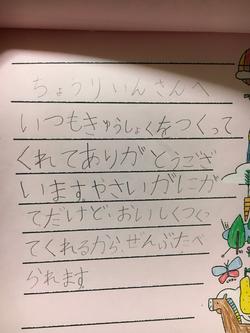 ちょうりいんさんへ
いつもきゅうしょくをつくって
くれてありがとうござ
います。やさいがにが
てだけど、おいしくつくっ
てくれるから、ぜんぶたべ
られます。